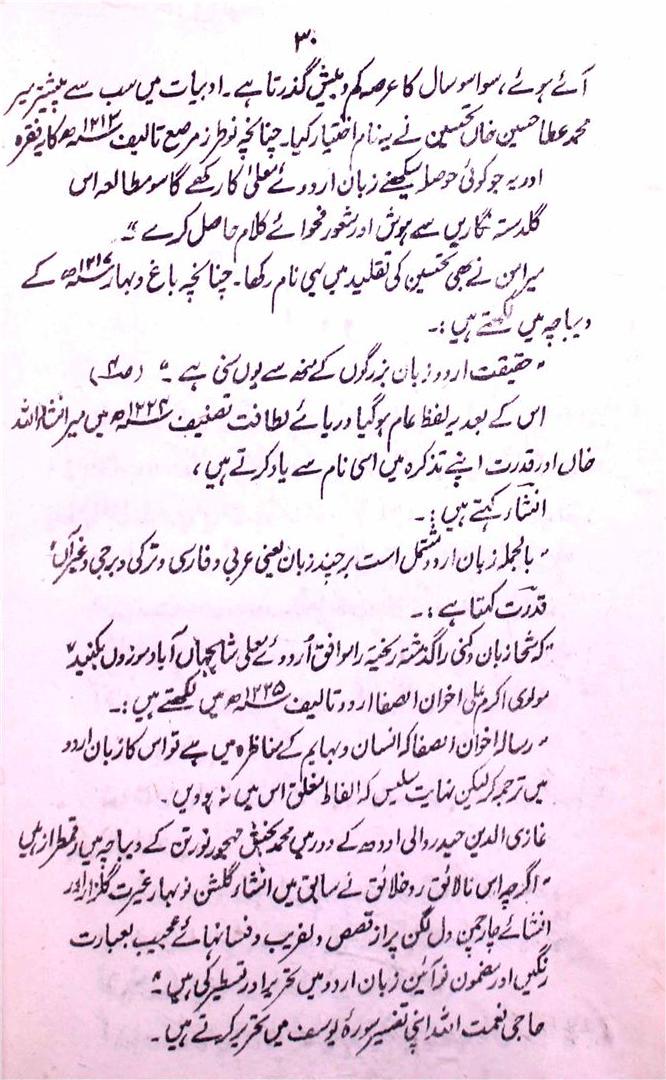 ۳۰
آئے ہوئے، سوا سو سال کا عرصہ کم و بیش گذرتا ہے۔ ادبیات میں سب سے پیشتر میر
محمد عطا حسین خاں تحسین نے یہ نام اختیار کیا۔ چنانچہ نوطرز مرصع تالیف ۱۲۱۳ھ کا یہ فقرہ
اور یہ جو کوئی حوصلہ سیکھنے زبان اردوئے معلیٰ کا رکھے گا سو مطالعہ اس
گلدستہ نگاریں سے ہوش اور شعور فحوائے کلام حاصل کرے"۔
میرامن نے بھی تحسین کی تقلید میں یہی نام رکھا۔ چنانچہ باغ و بہار ۱۲۱۷ھ کے
دیباچہ میں لکھتے ہیں:۔
"حقیقت اردو زبان بزرگوں کے منھ سے یوں سنی ہے۔" (ص۴)
اس کے بعد یہ لفظ عام ہوگیا دریائے لطافت تصنیف ۱۲۲۲ھ میں میر انشاء اللہ
خاں اور قدرت اپنے تذکرہ میں اسی نام سے یاد کرتے ہیں،
انشاء کہتے ہیں:۔
"بالجملہ زبان اردو مشتمل است بر چند زبان یعنی عربی و فارسی و ترکی و برجی و غیرآں"
قدرت کہتا ہے:۔
"کہ شما زبان دکنی را گذشتہ ریختہ را موافق اُردوئے معلی شاہجہاں آباد موزوں بکنید"
مولوی اکرم علی اخوان الصفا اردو تالیف ۱۲۲۵ھ میں لکھتے ہیں:۔
"رسالہ اخوان الصفا کہ انسان و بہایم کے مناظرہ میں ہے تو اس کا زبان اردو
میں ترجمہ کر لیکن نہایت سلیس کہ الفاظ مغلق اس میں نہ ہوویں۔
غازی الدین حیدر والی اودھ کے دور میں محمد بخش مہجور نورتن کے دیباچہ میں رقمطراز ہیں
"اگرچہ اس نالائق رو خلائق نے سابق میں انشاء گلشن نوبہار غیرت گلزار اور
انشائے چارچمن دل لگن پر از قصص دلفریب و فسانہائے عجیب بعبارت
رنگیں اور مضمون نو آئین زبان اردو میں تحریر اور تسطیر کی ہیں۔"
حاجی نعمت اللہ اپنی تفسیر سورۂ یوسف میں تحریر کرتے ہیں۔